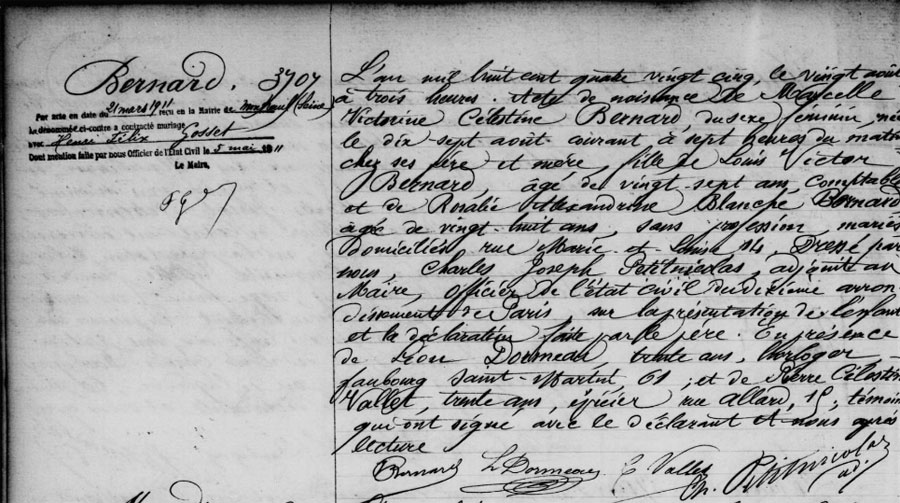 Bernard. 3707
Par acte en date du 21 mars 1911 reçu en la Mairie de (Seine)
Le dénommé ci-contre a contracté mariage
avec Henri Félix Gosset
Dont mention faite par nous Officier de l'Etat Civil le 5 mai 1911
Le Maire,
L'an mil huit cent quatre vingt cinq, le vingt août
à trois heures. Acte de naissance De Marcelle
Victorine Célestine Bernard, du sexe féminin, née
le dix sept août courant à sept heures du matin
chez ses père et mère, fille de Louis Victor
Bernard, âgé de vingt sept ans, comptable
et de Rosalie Alexandrine Blanche Bernard
âgée de vingt huit ans, sans profession, mariés
Domiciliés rue Marie et Louise 14, Dressé par
nous, Charles Joseph Petitnicolas, adjoint au
Maire, officier de l'état civil du dixième arron-
dissement de Paris sur la présentation de l'enfant
et la déclaration faite par le père. En présence
de Léon Dormeau trente ans, horloger
faubourg Saint-Martin 61, et de Pierre Célestin
Vallet, trente ans, épicier rue Allard, 15, témoins
qui ont signé avec le déclarant et nous après
lecture
Bernard L Dormeau C Vallet Ch. Petitnicolas
adj.